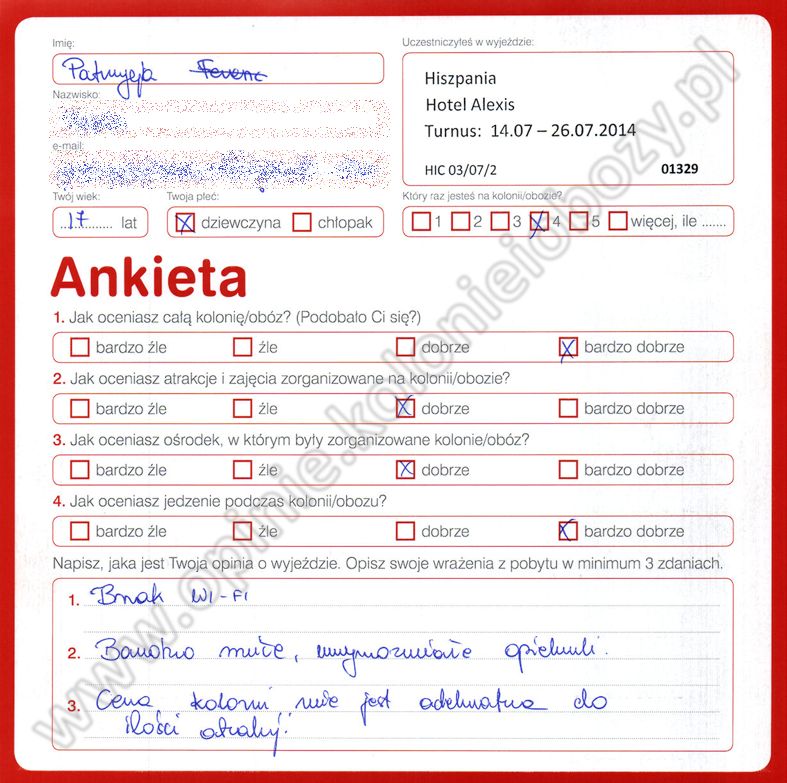 Imię:
Patrycja
Nazwisko:
e-mail:
Twój wiek:
17 lat
Twoja płeć:
dziewczyna chłopak
Uczestniczyłeś w wyjeździe:
Hiszpania
Hotel Alexis
Turnus: 14.07 – 26.07.2014
HIC 03/07/2 01329
Który raz jesteś na kolonii/obozie?
1 2 3 4 5 więcej, ile .......
Ankieta
1. Jak oceniasz całą kolonię/obóz? (Podobało Ci się?)
bardzo źle źle dobrze bardzo dobrze
2. Jak oceniasz atrakcje i zajęcia zorganizowane na kolonii/obozie?
bardzo źle źle dobrze bardzo dobrze
3. Jak oceniasz ośrodek, w którym były zorganizowane kolonie/obóz?
bardzo źle źle dobrze bardzo dobrze
4. Jak oceniasz jedzenie podczas kolonii/obozu?
bardzo źle źle dobrze bardzo dobrze
Napisz, jaka jest Twoja opinia o wyjeździe. Opisz swoje wrażenia z pobytu w minimum 3 zdaniach.
1. Brak WI-FI
2. Bardzo miłe, wyrozumiałe opiekunki.
3. Cena kolonii nie jest adekwatna do
ilości atrakcji.
www.opinie.kolonieiobozy.pl